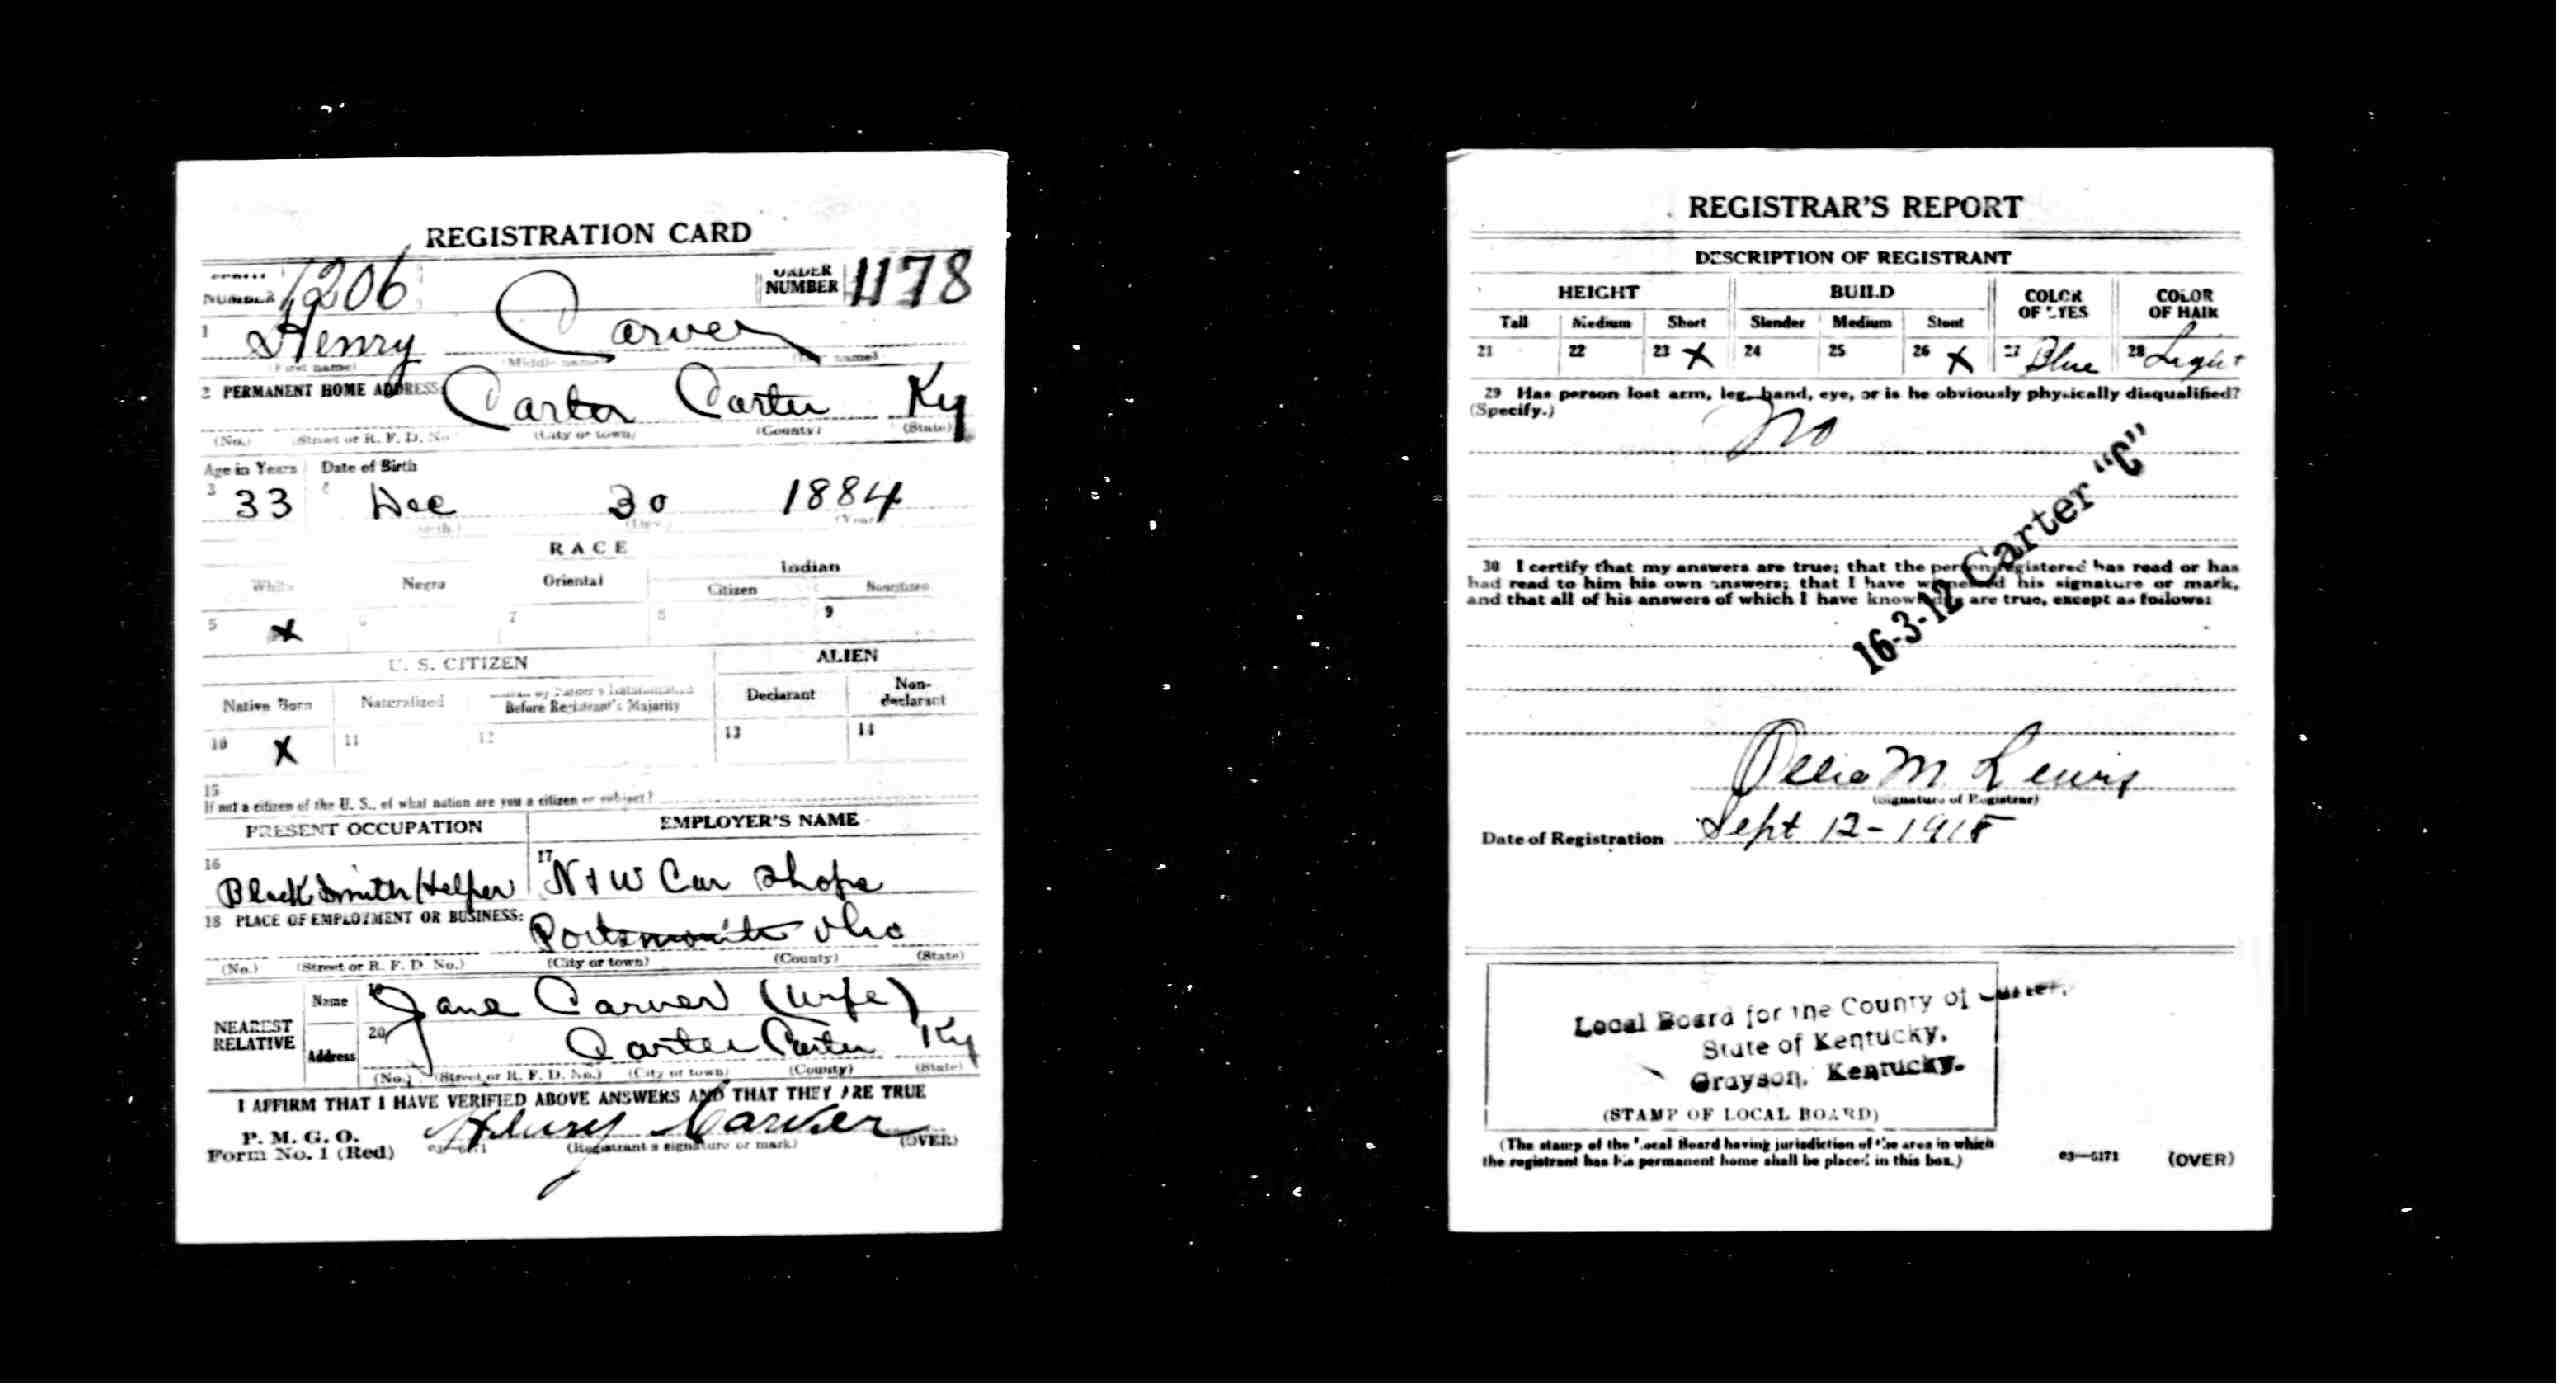 REGISTRATION CARD
NUMBER 1206 ORDER NUMBER 1178
1 Henry Carver
(First name) (Middle name) name)
2 PERMANENT HOME ADDRESS: Carter Carter Ky
(No.) (Street or R. F. D. No (City or town) (County) (State)
Age in Years Date of Birth
3 33 Dec 30 1884
(Day) (Year)
RACE
White Negro Oriental Indian
Citizen Noncitizen
5 X 6 7 8 9
U. S. CITIZEN ALIEN
Native Born Naturalized Before Registrant's Majority Declarant Non-declarant
10 X 11 12 13 14
15
If not a citizen of the U. S., of what nation are you a citizen or subject?
PRESENT OCCUPATION EMPLOYER'S NAME
16 Black Smith Helper 17 N & W Car Shops
18 PLACE OF EMPLOYMENT OR BUSINESS:
Portsmouth Ohio
(No.) (Street or R. F. D. No.) (City or town) (County) (State)
NEAREST RELATIVE Name 19 Jane Carver (wife)
Address 20 Carter Carter Ky
(No.) (Street or R. F. D. No.) (City or town) (County) (State)
I AFFIRM THAT I HAVE VERIFIED ABOVE ANSWERS AND THAT THEY ARE TRUE
P. M. G. O.
Form No. 1 (Red) Henry Carver
(Registrant's signature or mark) (OVER)
REGISTRAR'S REPORT
DESCRIPTION OF REGISTRANT
HEIGHT BUILD COLOR OF EYES COLOR OF HAIR
Tall Medium Short Slender Medium Stout
21 22 23 X 24 25 26 X 27 Blue 28 Light
29 Has person lost arm, leg, hand, eye, or is he obviously physically disqualified?
(Specify.) No
16-3-12 Carter "C"
30 I certify that my answers are true; that the person registered has read or has
had read to him his own answers; that I have witnessed his signature or mark,
and that all of his answers of which I have knowledge are true, except as follows:
Ollie M. Lewis
(Signature of Registrar)
Date of Registration Sept 12-1918
Local Board for the County of Carter,
State of Kentucky,
Grayson, Kentucky.
(STAMP OF LOCAL BOARD)
(The stamp of the Local Board having jurisdiction of the area in which
the registrant has his permanent home shall be placed in this box.)
03—6171 (OVER)